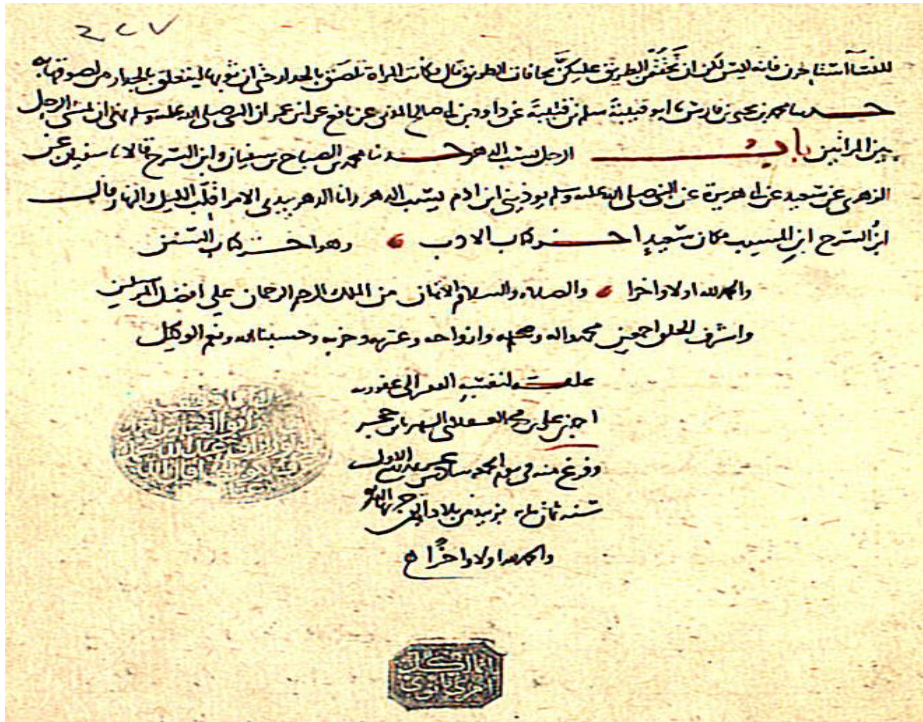 ٢٤٧
للنسا استاخرن فانه ليس لكن ان تحققن الطريق عليكن بحافات الطريق قال فكانت المراة تلصق بالجدار حتى ان ثوبها ليتعلق بالجدار من لصوقها به
حدثنا محمد بن يحيى بن فارس ثنا ابو قتيبة سلم بن قتيبة عن داود بن ابي صالح المدني عن نافع عن ابن عمر ان النبي صلى الله عليه وسلم نهى ان يمشي الرجل
بين المراتين باب الرجل يسب الدهر حدثنا محمد بن الصباح بن سفيان وابن السرح قالا ثنا سفين عن
الزهري عن سعيد عن ابي هريرة عن النبي صلى الله عليه وسلم يوذيني ابن ادم يسب الدهر وانا الدهر بيدي الامر اقلب الليل والنهار قال
ابن السرح ابن المسيب مكان سعيد اخر كتاب الادب وهو اخر كتاب السنن
والحمد لله اولا واخرا والصلاة والسلام الاتمان من الملك الرحيم الرحمان على افضل المرسلين
واشرف الخلق اجمعين محمد واله وصحبه وازواجه وعترته وحزبه وحسبنا الله ونعم الوكيل
علقه لنفسه الفقير الى عفو ربه
احمد بن علي بن محمد العسقلاني الشهير بابن حجر
وفرغ منه في يوم الجمعة سادس عشر ربيع الاول
سنة ثمان مايه بزبيد من بلاد اليمن
والحمد لله اولا واخرا